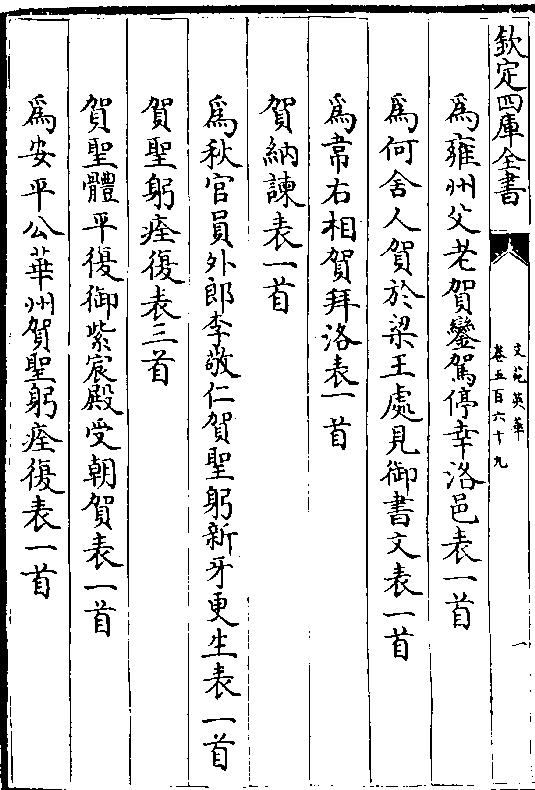 欽定四庫全書
文苑英華
卷五百六十九
一
爲雍州父老賀鑾駕停幸洛邑表一首
爲何舍人賀於梁王處見御書文表一首
爲韋右相賀拜洛表一首
賀納諫表一首
爲秋官員外郎李敬仁賀聖躬新牙更生表一首
賀聖躬痊復表三首
賀聖體平復御紫宸殿受朝賀表一首
爲安平公華州賀聖躬痊復表一首